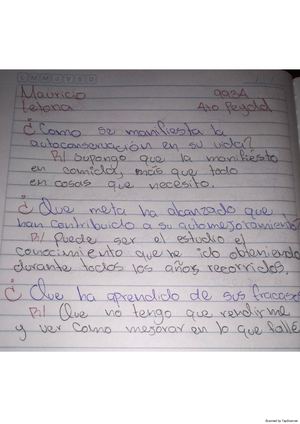 L M M J V S D
Mauricio 993A
Letona 4to Peg
¿Como se manifiesta la
autoconservación en su vida?
R// Supongo que la manifiesto
en comida, más que todo
en cosas que necesito.
¿Que meta ha alcanzado que
han contribuido a su automejoramiento
R// Puede ser el estudio el
conocimiento que he ido obteniendo
durante todos los años recorridos.
¿Que ha aprendido de sus fracasos
R// Que no tengo que rendirme
y ver como mejorar en lo que fallé
Scanned by TapScanner